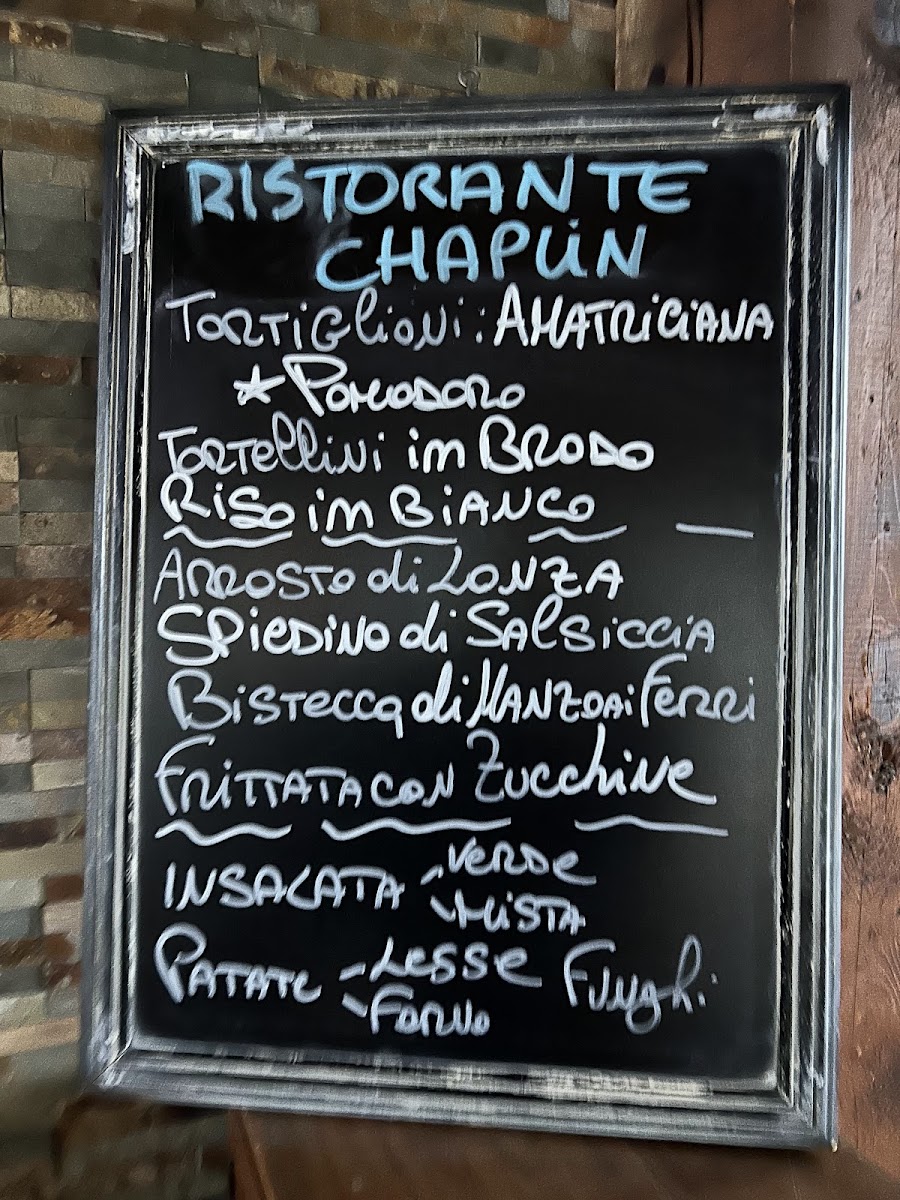 RISTORANTE
CHAPLIN
TORTIGLIONI: AMATRICIANA
* POMODORO
TORTELLINI in BRODO
RISO in BIANCO
ARROSTO di LONZA
SPIEDINO di SALSICCIA
BISTECCA di MANZO Ai FERRI
FRITTATA CON ZUCCHINE
INSALATA - VERDE
- MISTA
PATATE - LESSE FUNGHI
- FORNO